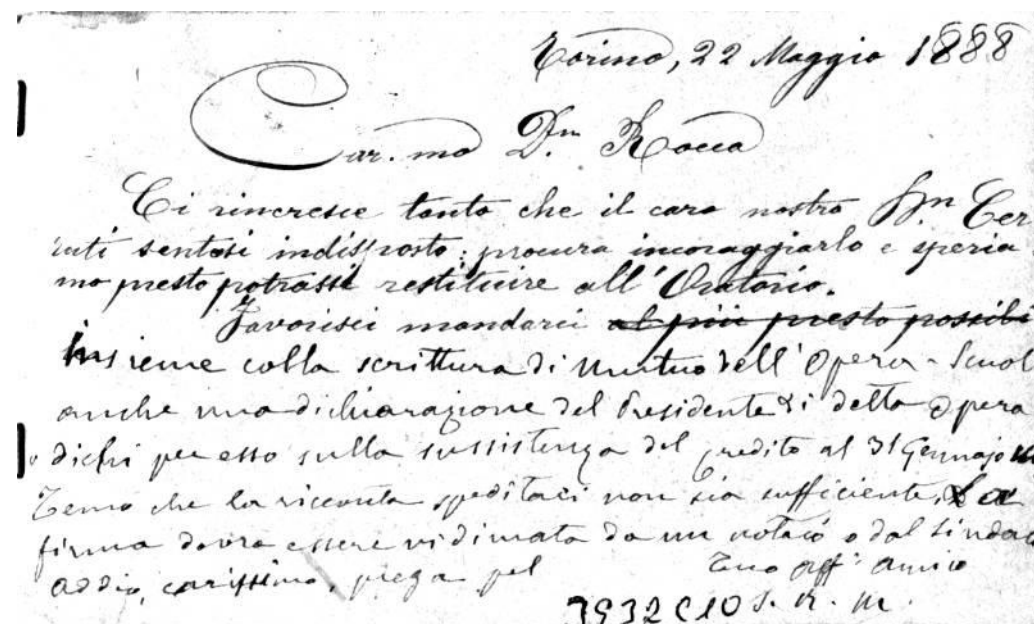 Torino, 22 Maggio 1888
Car.mo Dn Rocca
Ci rincresce tanto che il caro nostro Dn Cer
ruti sentasi indisposto; procura incoraggiarlo e speria
mo presto potrassi restituire all'Oratorio.
Favorisci mandarci al più presto possibi
insieme colla scrittura di Mutuo dell'Opera-Scuol
anche una dichiarazione del Presidente di detta Opera
o dichi per esso sulla sussistenza del credito al 31 Gennajo
Temo che la ricevuta speditaci non sia sufficiente. La
firma dovrà essere vidimata da un notaio o dal Sindaco
Addio, carissimo, prega pel Tuo aff. amico
3932C10 S. R. M.